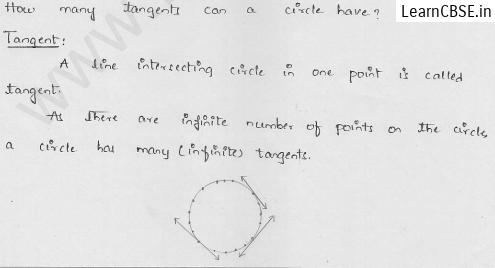 How many tangents can a circle have?
LearnCBSE.in
Tangent:
A line intersecting circle in one point is called
tangent.
As there are infinite number of points on the circle
a circle has many (infinite) tangents.